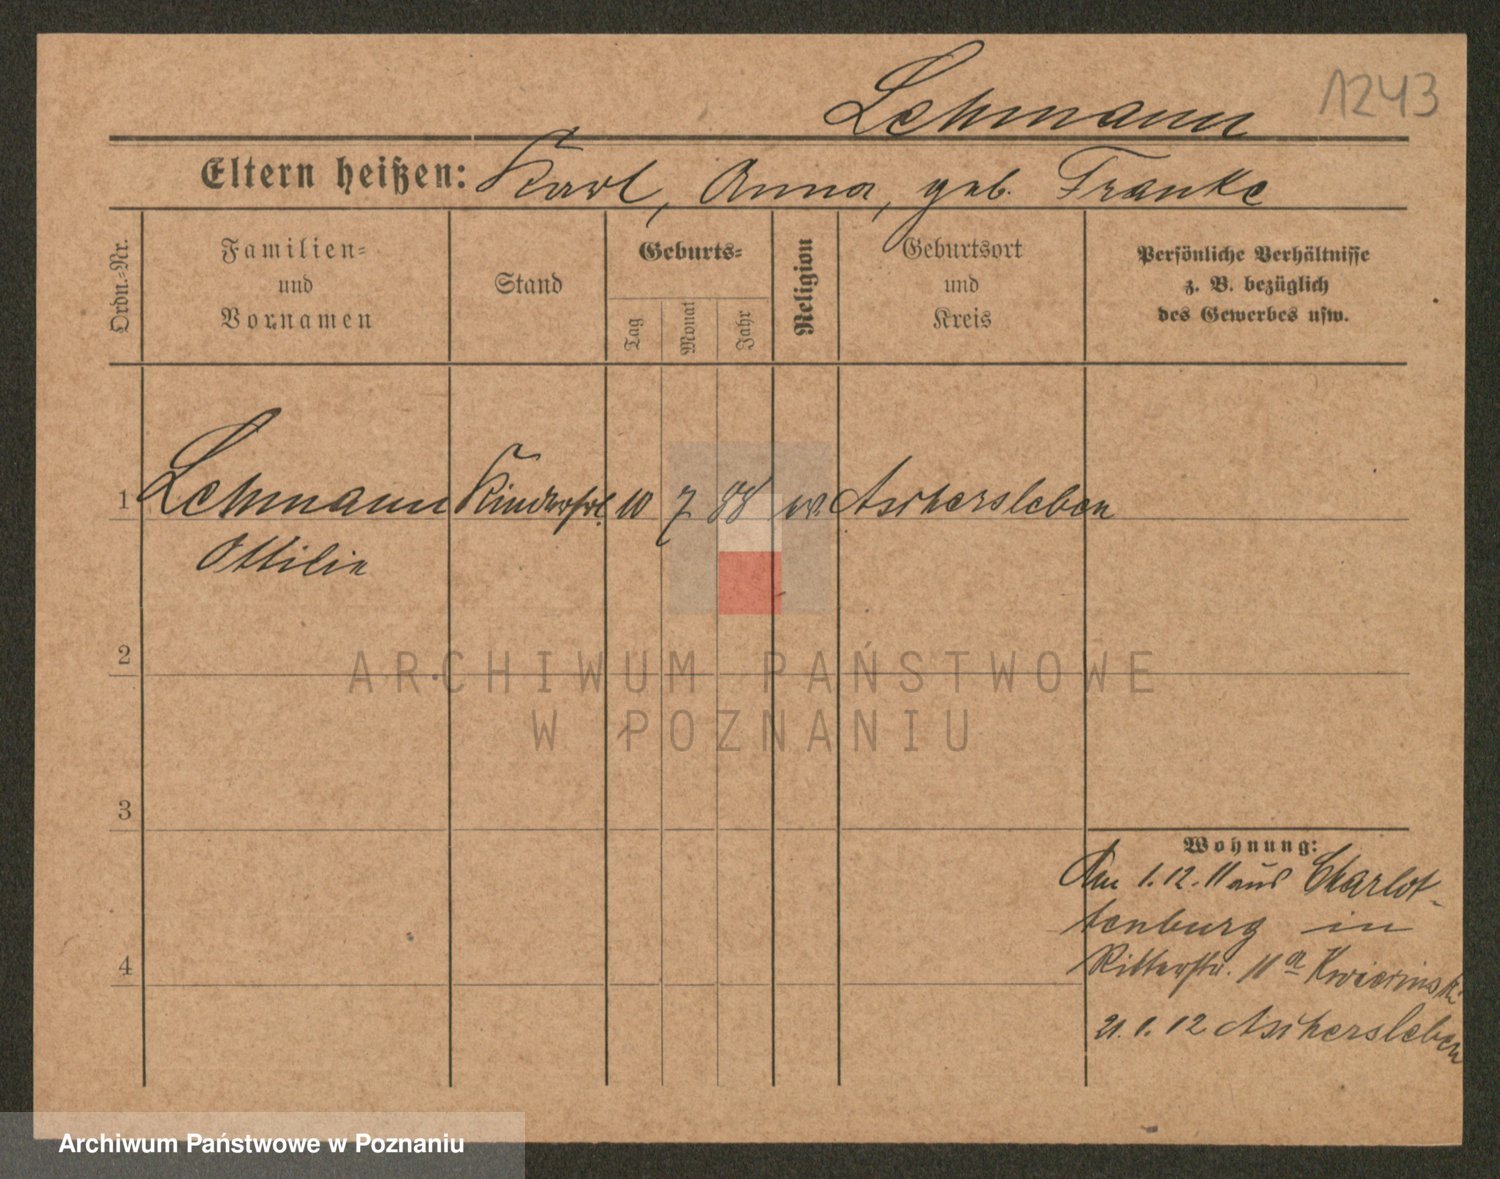 1243
Lehmann
Eltern heißen: Karl, Anna, geb. Franke
Ordn.=Nr.
Familien=
und
Vornamen
Stand
Geburts=
Tag
Monat
Jahr
Religion
Geburtsort
und
Kreis
Persönliche Verhältnisse
z. B. bezüglich
des Gewerbes usw.
1 Lehmann Kinderfrl. 10 7 88 ev. Aschersleben
Ottilie
2
ARCHIWUM PAŃSTWOWE
W POZNANIU
3
Wohnung:
Am 1.12.11 aus Charlot-
tenburg in
4
Ritterstr. 11a
21.1.12 Aschersleben
Archiwum Państwowe w Poznaniu